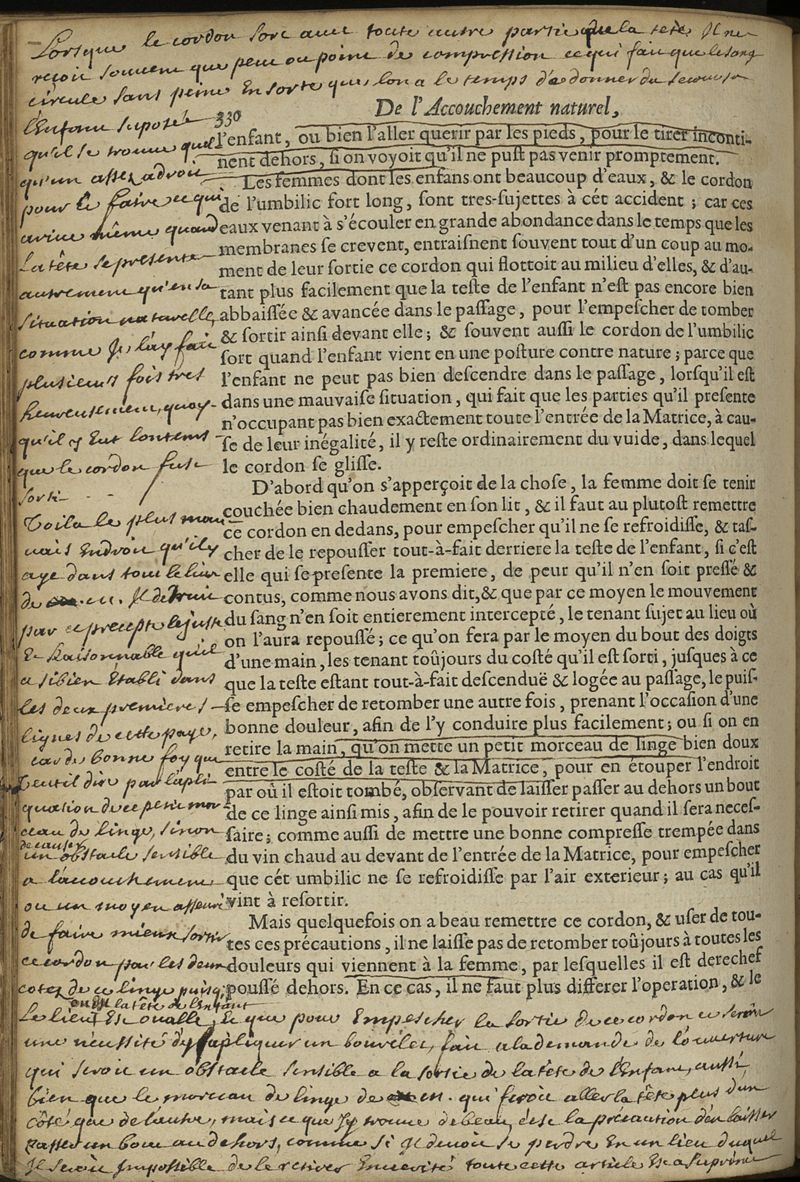 Lorsque le cordon sort avec toute autre partie que la tete Il ne
reçoit souvent que peu ou point de compression ce qui fait que le sang
circule sans peine En sorte que l'on a le temps de donner du secours a
330
De l'Accouchement naturel,
l'enfant, ou bien l'aller querir par les pieds, pour le tirer inconti-
nent dehors, si on voyoit qu'il ne pust pas venir promptement.
Les femmes dont les enfans ont beaucoup d'eaux, & le cordon
de l'umbilic fort long, sont tres-sujettes à cét accident ; car ces
eaux venant à s'écouler en grande abondance dans le temps que les
membranes se crevent, entraisnent souvent tout d'un coup au mo-
ment de leur sortie ce cordon qui flottoit au milieu d'elles, & d'au-
tant plus facilement que la teste de l'enfant n'est pas encore bien
abbaissée & avancée dans le passage, pour l'empescher de tomber
& sortir ainsi devant elle ; & souvent aussi le cordon de l'umbilic
sort quand l'enfant vient en une posture contre nature ; parce que
l'enfant ne peut pas bien descendre dans le passage, lorsqu'il est
dans une mauvaise situation, qui fait que les parties qu'il presente
n'occupant pas bien exactement toute l'entrée de la Matrice, à cau-
se de leur inégalité, il y reste ordinairement du vuide, dans lequel
le cordon se glisse.
D'abord qu'on s'apperçoit de la chose, la femme doit se tenir
couchée bien chaudement en son lit, & il faut au plutost remettre
ce cordon en dedans, pour empescher qu'il ne se refroidisse, & tas-
cher de le repousser tout-à-fait derriere la teste de l'enfant, si c'est
elle qui se presente la premiere, de peur qu'il n'en soit pressé &
contus, comme nous avons dit, & que par ce moyen le mouvement
du sang n'en soit entierement intercepté, le tenant sujet au lieu où
on l'aura repoussé ; ce qu'on fera par le moyen du bout des doigts
d'une main, les tenant toûjours du costé qu'il est sorti, jusques à ce
que la teste estant tout-à-fait descenduë & logée au passage, le puis-
se empescher de retomber une autre fois, prenant l'occasion d'une
bonne douleur, afin de l'y conduire plus facilement ; ou si on en
retire la main, qu'on mette un petit morceau de linge bien doux
entre le costé de la teste & la Matrice, pour en étouper l'endroit
par où il estoit tombé, observant de laisser passer au dehors un bout
de ce linge ainsi mis, afin de le pouvoir retirer quand il sera neces-
saire ; comme aussi de mettre une bonne compresse trempée dans
du vin chaud au devant de l'entrée de la Matrice, pour empescher
que cét umbilic ne se refroidisse par l'air exterieur ; au cas qu'il
vint à resortir.
Mais quelquefois on a beau remettre ce cordon, & user de tou-
tes ces précautions, il ne laisse pas de retomber toûjours à toutes les
douleurs qui viennent à la femme, par lesquelles il est derechef
poussé dehors. En ce cas, il ne faut plus differer l'operation, & le
l'Enfant suposé
qu'il se trouve quel
qu'un assez adroit
pour le faire ce qui
arive même quand
la tête se presente
autrement qu'en sa
situation naturelle,
comme Je l'ay fait
plusieurs fois tres
heureusement, quoy-
qu'il y Eut lontems
que le cordon fust
sorti
Voila le plus mau-
vais Endroit qu'il y
aye dans tout le liv
de en. Il detruit
par ce precepte le juste
Et Raisonnable qu'il
a si bien Etabli dans
les deux premieres
lignes de cette page,
car de bonne foy que
veut il dire par l'apli-
quation de ce petit mor-
ceau de linge, sinon
de causer
un obstacle sensible
a l'acouchement
ou un moyen asseuré
de faire mieux sortir
ce cordon par les deux
cotez de ce linge puisq
ou est la tête de l'Enfant
le lieu Est ovalle, Et que pour Empescher la sortie de ce cordon ce seroit
une necessité d'y apliquer un bourelet, fait a la demande de l'ouverture
qui seroit un obstacle sensible a la sortie de la tête de l'Enfant, aussi
bien que le morceau de linge de en. qui feroit aller la tête plus d'un
côté que de l'autre, mais ce que J'y trouve de beau, c'est la précaution d'en laisser
passer un bout au dehors, comme si Il devoit se perdre En un lieu duquel
Il seroit Impossible de le retirer En verité toute cette article Est a suprimer